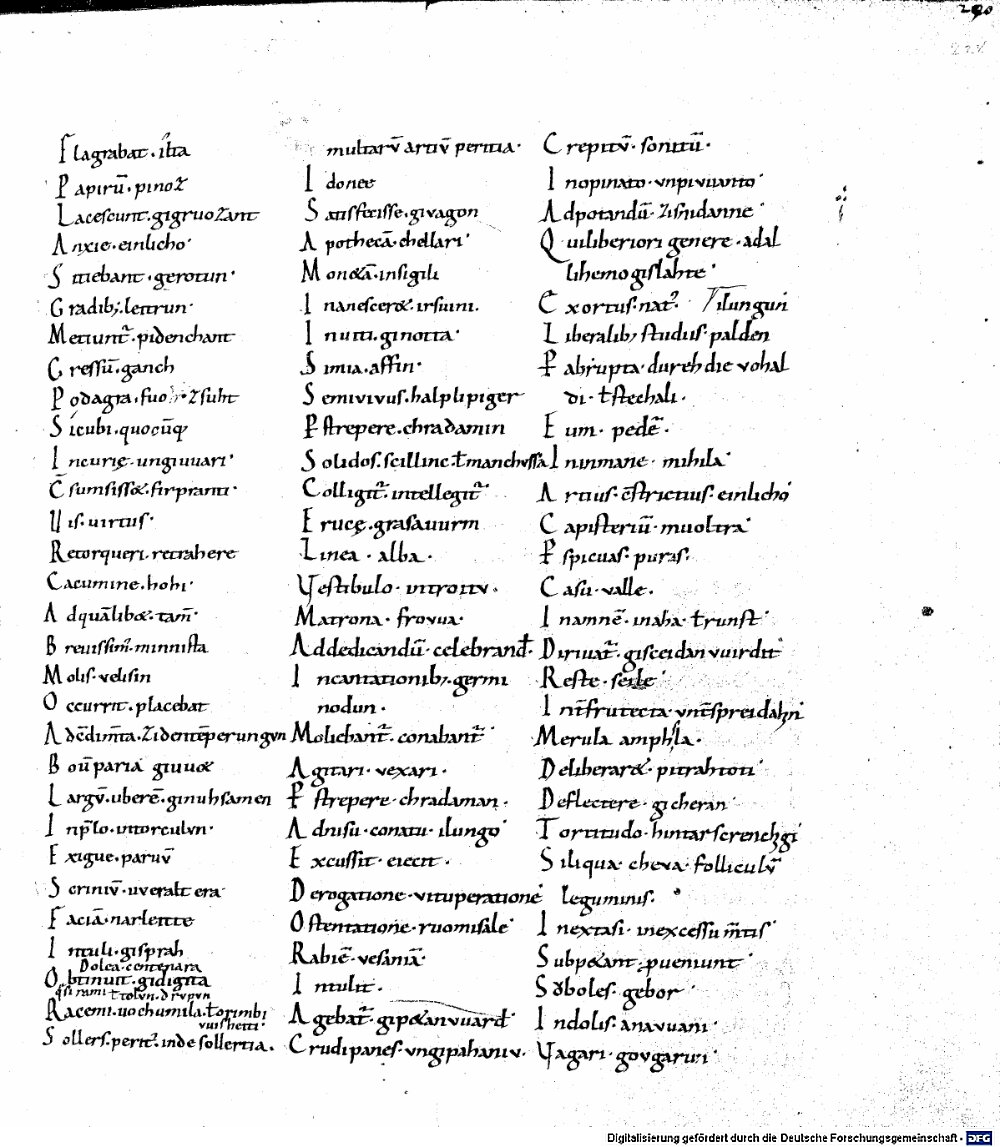 290
Flagrabat · ilta
Papirū · pinoz
Lacescunt · gigruozant
Anxie · einlicho
Stuebant · gerotun
Gradib; · leitrun
Metiunt᷒ · pidenchant
Gressū · ganch
Podagra · zsuht
Sicubi · quocūq
Incurię · ungiuuari
C̄sumsiss& · firpranti
Uis · uirtus
Retorqueri · retrahere
Cacumine · hohi
Adquālib& · tam̄
Breuissim̄ · minnista
Molis · velisin
Occurrit · placebat
Bou᷒paria giuuo&
Largū · uberē · ginuhsamen
Inp̄lo · uitorculvn
Exigue · paruv̄
Scriniv̄ · uveralt era
Faciā · narlentte
Intuli · gisprah
Dolea · centenara
Obtinuit · gidigita
Racemi · uochumila · ł orimbi
Sollers · perit᷒ · inde sollertia.
multarv̄ artiv̄ peritia ·
Idonee
Satisfecisse · givuagon
Apothecā · chellari
Mon&ā · insigili
Inanescer& · irsuini.
Inuiti · ginotta
Simia · affin
Semivivus · halplipiger
P̄strepere · chradamin
Solidos · scillinc · ł manchussa
Colligit᷒ · intellegit᷒
Erucę · grasauurm
Linea · alba ·
Vestibulo · introitv ·
Matrona · frovua
Addedicandū · celebrand̄
Incantationib; · germi
nodun ·
Molichant᷒ · conabant᷒
Agitari · vexari ·
P̄strepere · chradaman ·
Adnisu · conatu · ilungo
Excussit · eiecit ·
Derogatione · vituperatione
Ostentatione · ruomisale
Rabiē · vesaniā
Intulit ·
Agebat᷒ · gip&anvuard̄
Crudi panes · ungipahaniv ·
Crepitv̄ · sonitū ·
Inopinato · vnpivuanto
Adpotandū · zisnidanne
Quiliberiori genere · adal
lihemo gislahte
Exortus · nat᷒ · Ilungun
Liberalib; studiis · palden
P̄abrupta · durehdie vohal
di · ł stechali ·
Eum · pedē ·
Ininmane · mihila
Artius · c̄strictius · einlicho
Capisteriū · muoltra
P̄spicuas · puras
Casu · valle ·
Inamnē · inaha · ł runst
Diriuat᷒ · gisceidan vuirdit
Reste · seile
Merula amphsla ·
Deliberar& · pitrahtoti
Deflectere · gicheran
Tortitudo · hintarscrenchgi
Siliqua · cheva · folliculv̄
leguminis ·
Inextasi · inexcessu m̄tis
Subp&ant · pueniunt
Soboles · gebor
Indolis · anavuani
Vagari · govgarun
Digitalisierung gefördert durch die Deutsche Forschungsgemeinschaft - DFG